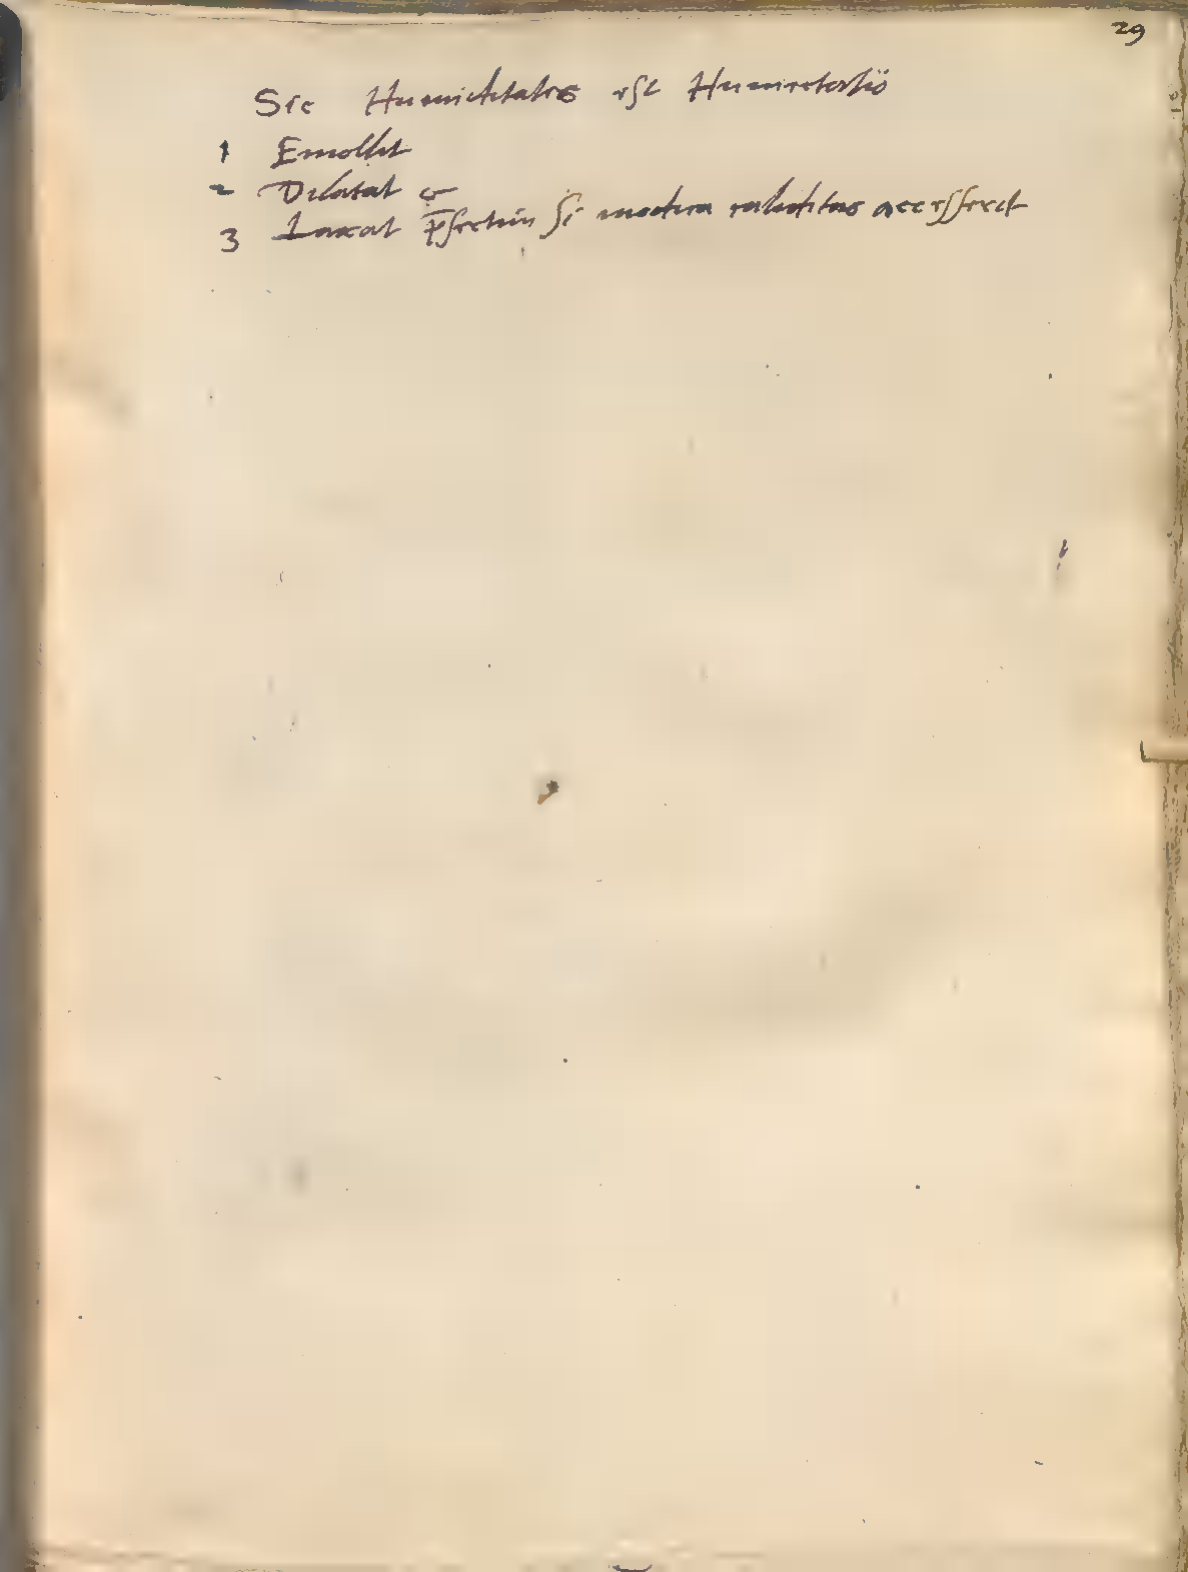 29
Sic Humiditatis est Humectatio
1 Emollit
2 Dilatat &
3 Laxat p̄sertim si modica caliditas accesserit